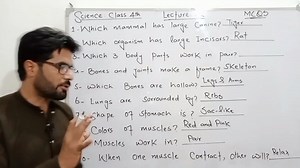 Science Class 4th Lecture MCQS
1- Which mammal has large Canine? Tiger
Which organism has large Incisors? Rat
Which 3 body parts work in pair?
Bones and joints make a frame? Skeleton
5- Which Bones are hollow? Legs & Arms
6- Lungs are Sorrounded by? Ribs
Shape of Stomach is? Sac-like
Colors of muscles? Red and Pink
Muscles work in? Pair
When one muscle Contract, other will? Relax